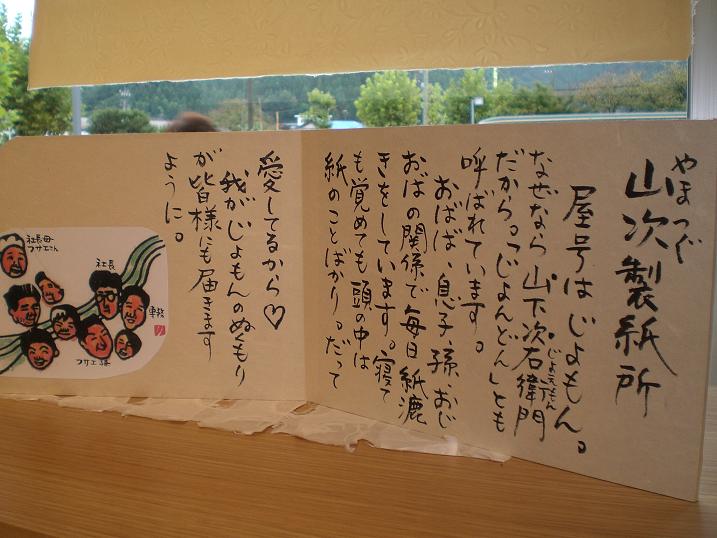 やまつぐ
山次製紙所
屋号はじょもん。
なぜなら山下次右衛門
じょえもん
だから。「じょんどん」とも
呼ばれています。
おばば、息子、孫、おじ
おばの関係で毎日紙漉
きをしています。寝て
も覚めても頭の中は
紙のことばかり。だって
愛してるから♡
我がじょもんのぬくもり
が皆様にも届きます
ように。
社長母
フサエさん
社長
専務